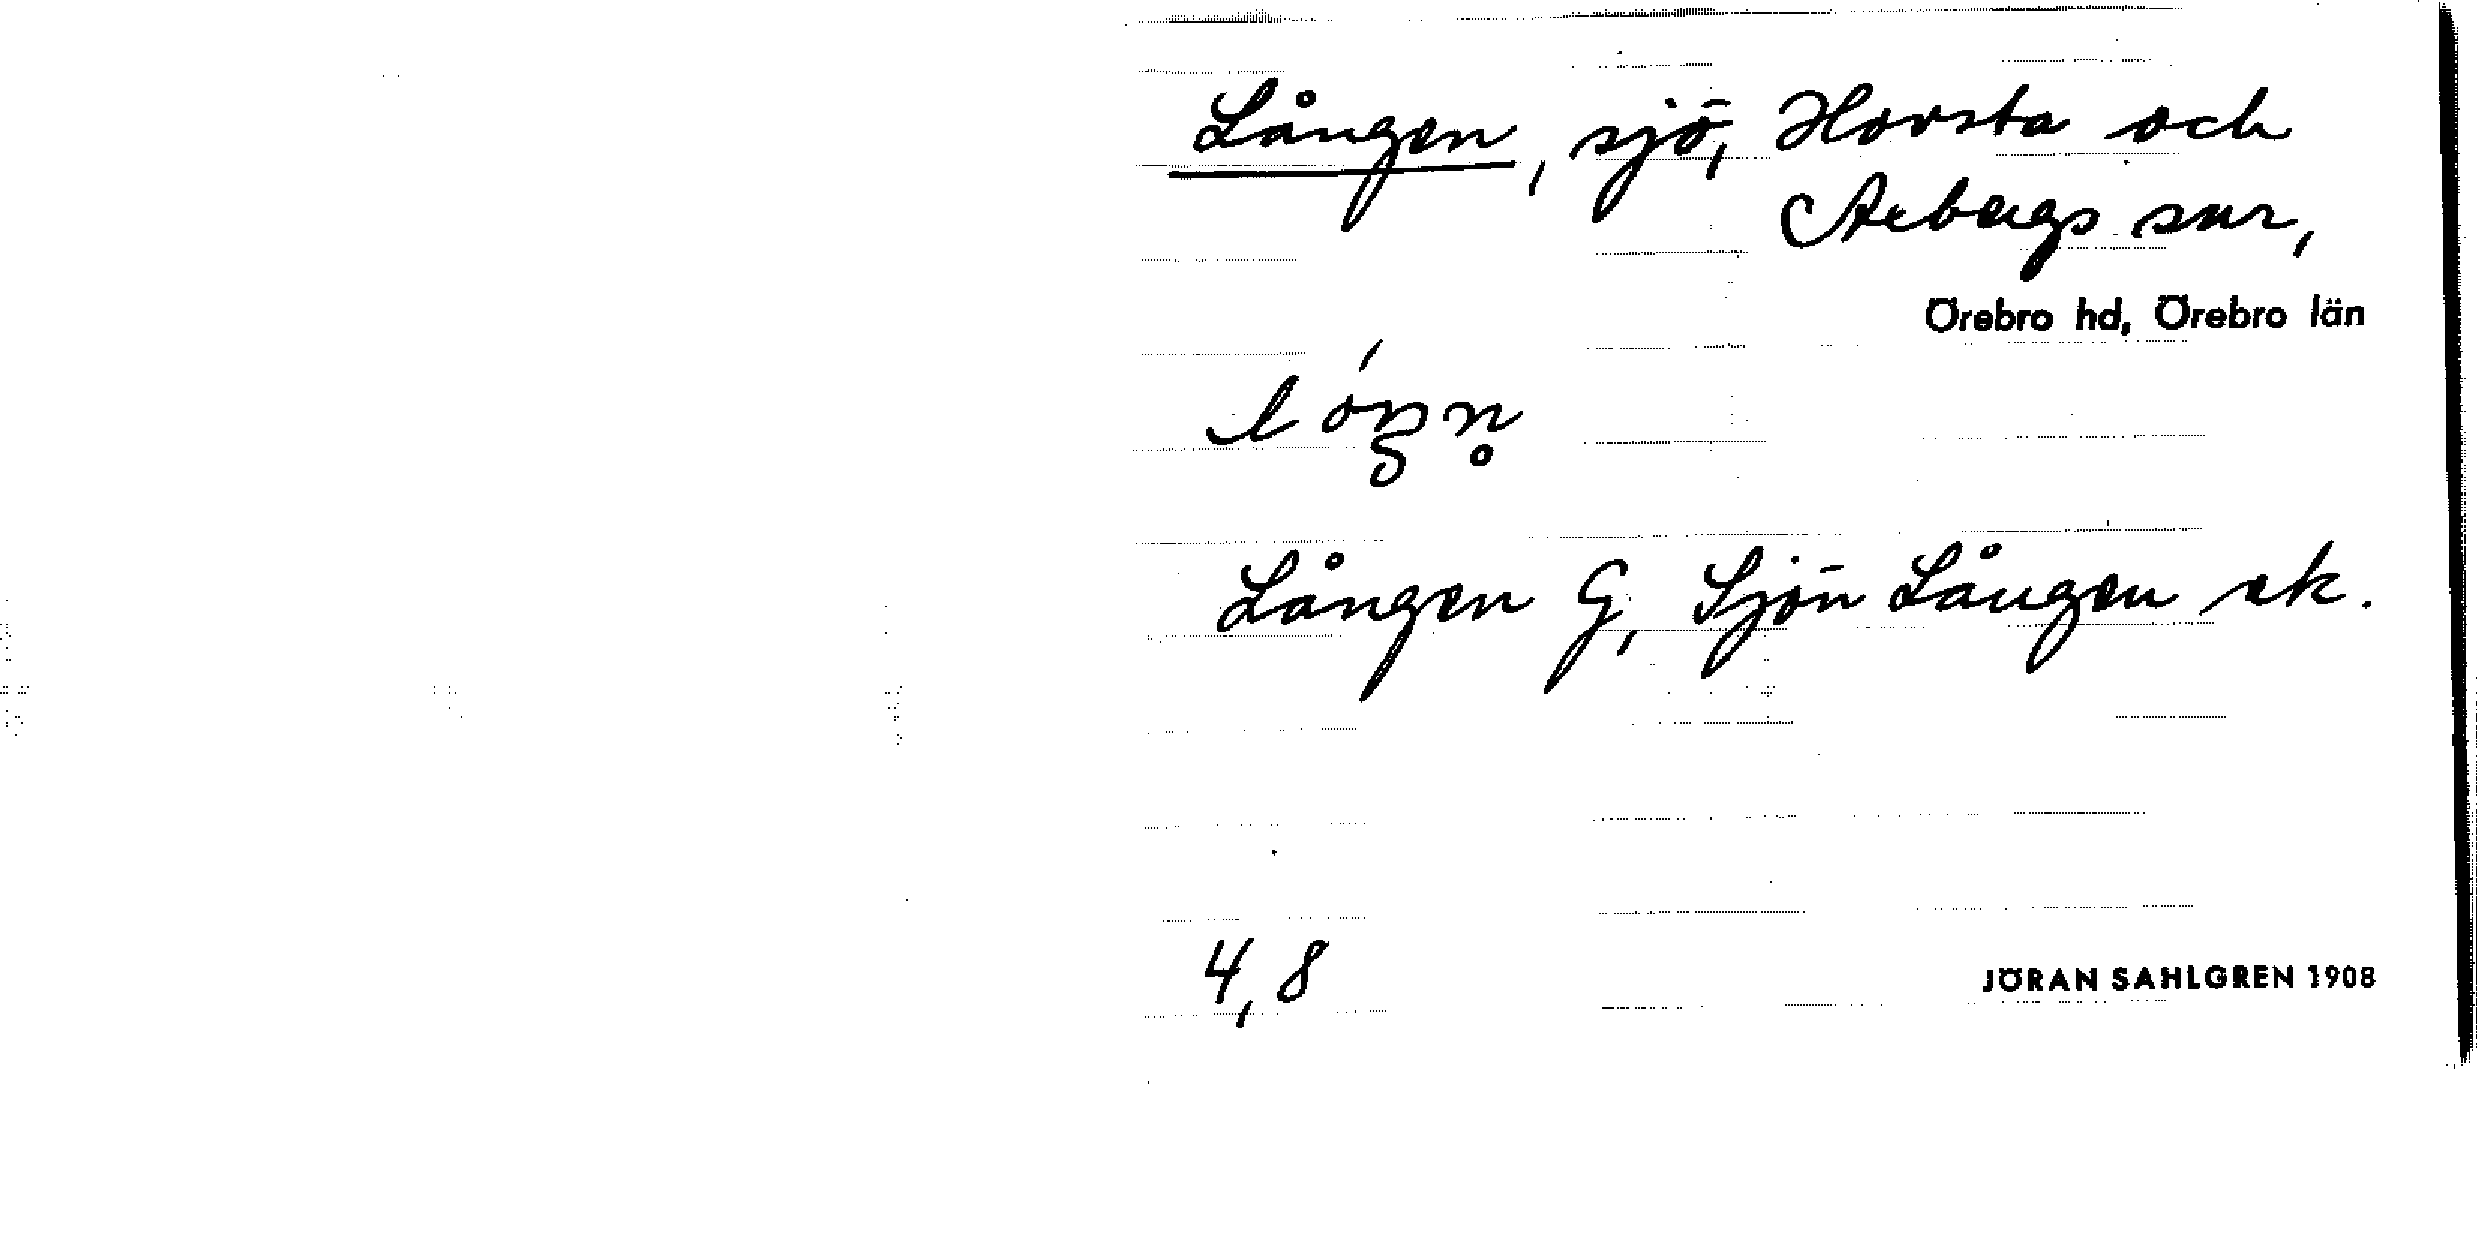 Lången, sjö, Hovsta och
Axbergs snr,
Örebro hd, Örebro län
Lången G, Sjön Lången ek.
4, 8
JÖRAN SAHLGREN 1908